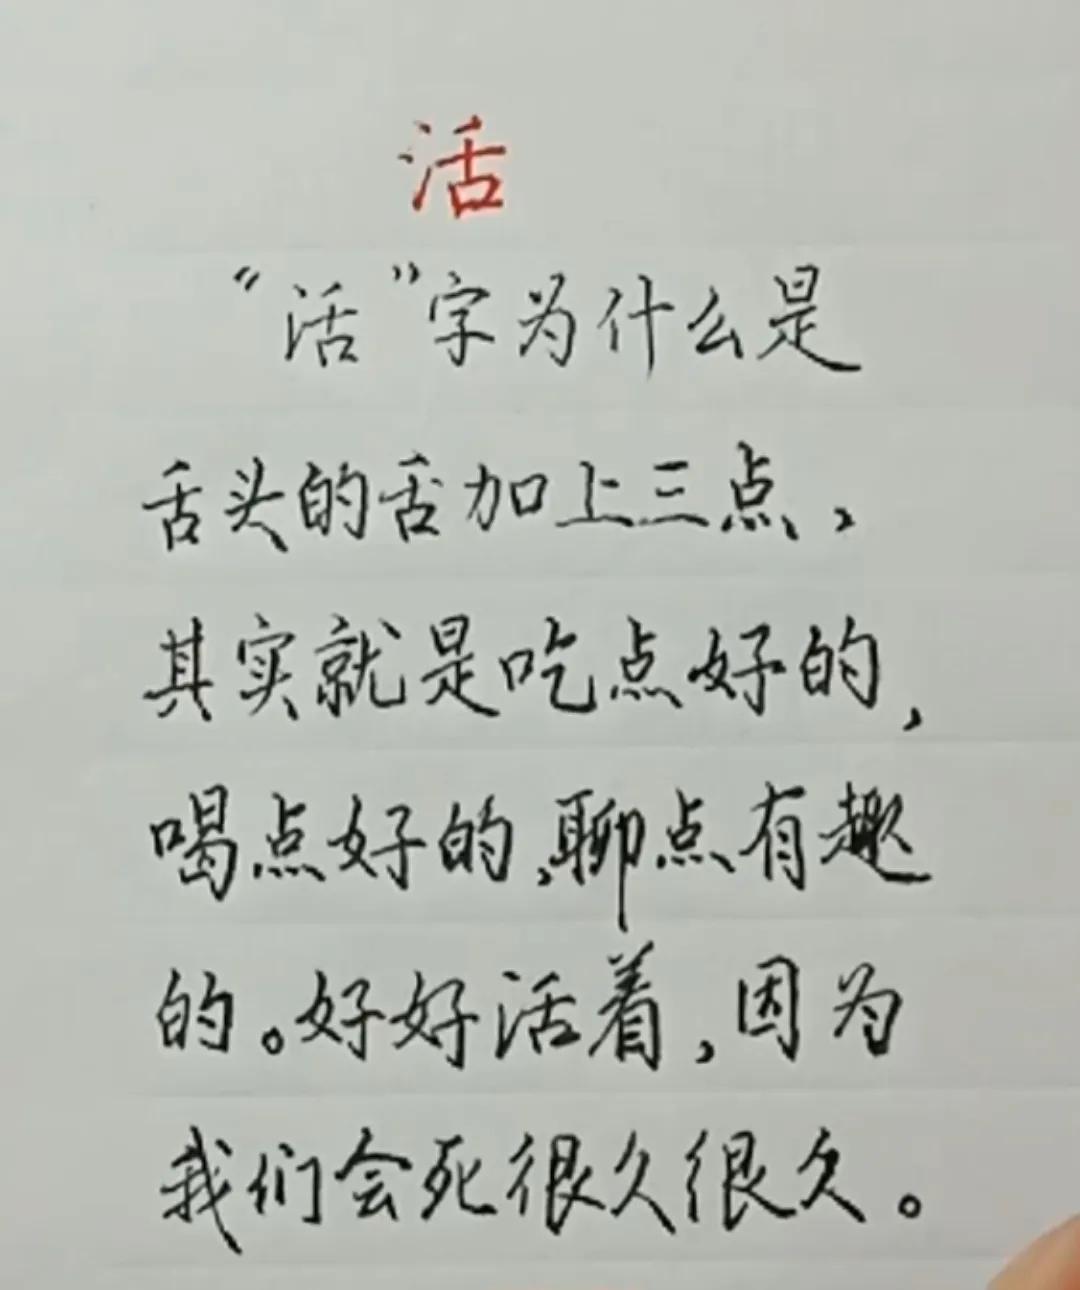 活
“活”字为什么是
舌头的舌加上三点,
其实就是吃点好的,
喝点好的,聊点有趣
的。好好活着,因为
我们会死很久很久。